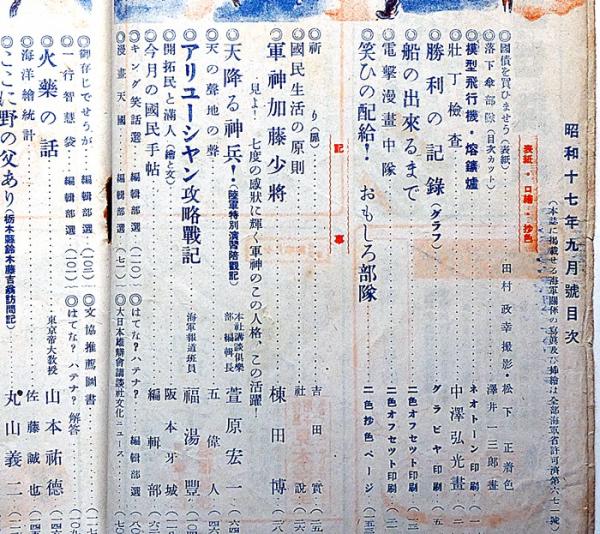 昭和十七年九月號目次
(本誌に掲載せる海軍關係の寫眞及び挿繪は全部海軍省許可濟第六七一號)
表紙・口繪・抄色
國債を買ひませう(表紙)……田村政幸撮影・松下正着色
落下傘部隊(目次カット)……澤井一三郎畫
模型飛行機・熔鑛爐……ネオトーン印刷
壯丁檢査……中澤弘光畫
勝利の記錄(グラフ)……グラビヤ印刷……(五
船の出來るまで……二色オフセツト印刷
電擊漫畫中隊……二色オフセツト印刷
笑ひの配給! おもしろ部隊……二色抄色ページ……(一五三
記事
祈り(扉)……吉田實……(一五
國民生活の原則……社說
軍神加藤少將……棟田博……(一八
見よ!七度の感狀に輝く軍神のこの人格、この活躍!
天降る神兵!(陸軍特別演習陪觀記)……本社講談俱樂部編輯長 萱原宏一……(六四
天の聲地の聲……五偉人
アリューシヤン攻略戰記……海軍報道班員 福湯豐
開拓民と滿人(繪と文)……阪本牙城
今月の國民手帖……編輯部……(六二
◎キング笑話選 編輯部選……(一二〇)
◎はてな?ハテナ? 編輯部選
◎漫畫天國 編輯部選……(七一)
◎大日本雄辯會講談社文化ニュース……(七〇
◎御存じでせうが 編輯部選……(一〇三)
◎文協推薦圖書
◎一行智慧袋 編輯部選……(二〇二)
◎はてな?ハテナ?解答
火藥の話……東京帝大教授 山本祐德
海洋繪統計……佐藤誠也
◎ここに野の父あり(栃木縣鈴木藤吉翁訪問記)……丸山義二